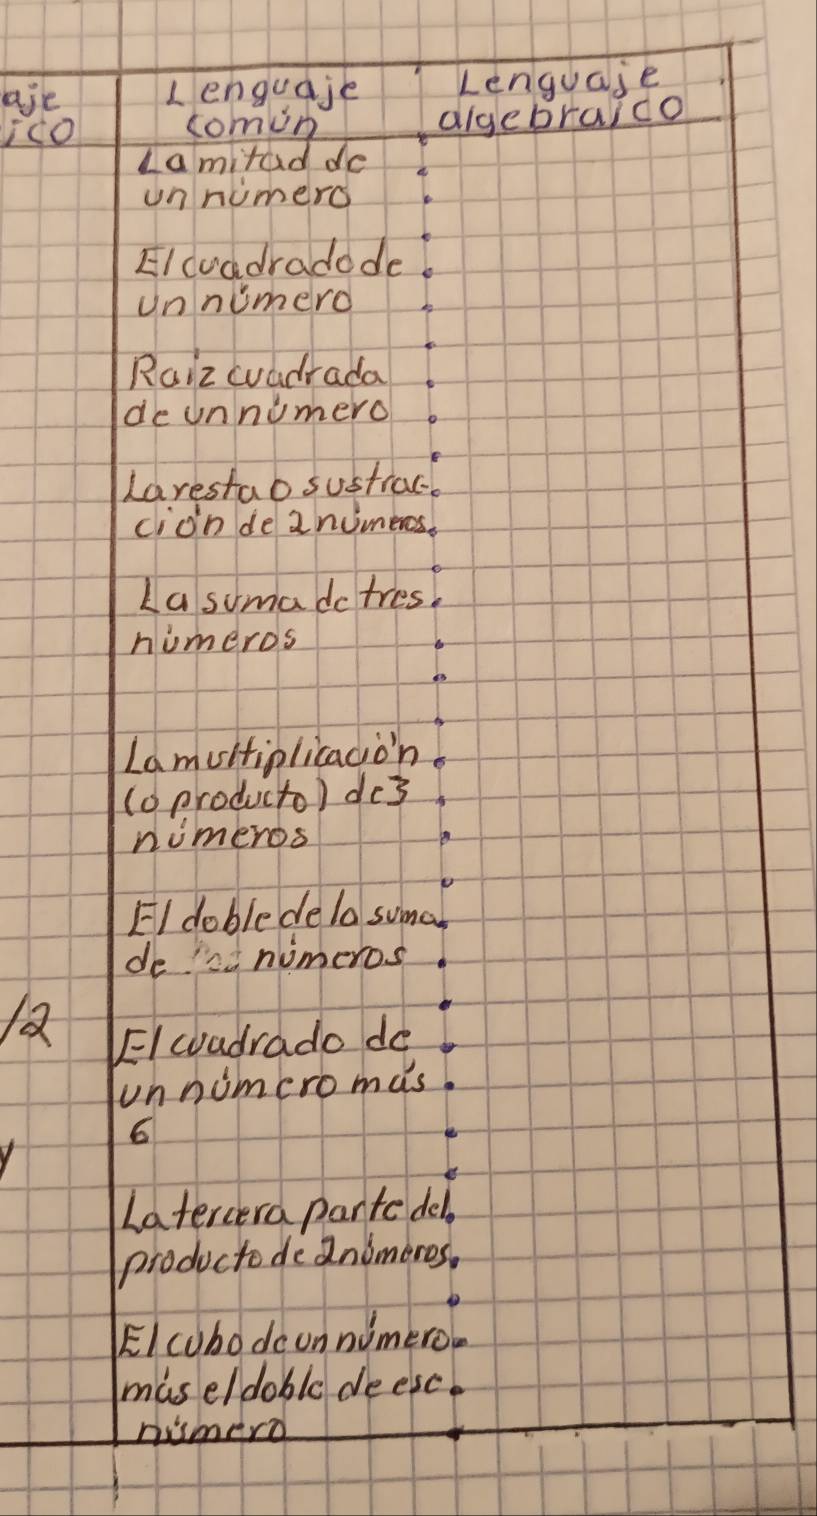 aje
ico
Lenguaje
común
Lenguaje
algebraico
La mitad de
un número
El cuadrado de
un número
Raiz cuadrada
de un número
La resta o sustrac-
ción de 2 números
La suma de tres
números
La multiplicación
(o producto) de 3
números
El doble de la suma
de números
12
El cuadrado de
un número más
6
y
La tercera parte del
producto de 2 números
El cubo de un número
más el doble de ese
número